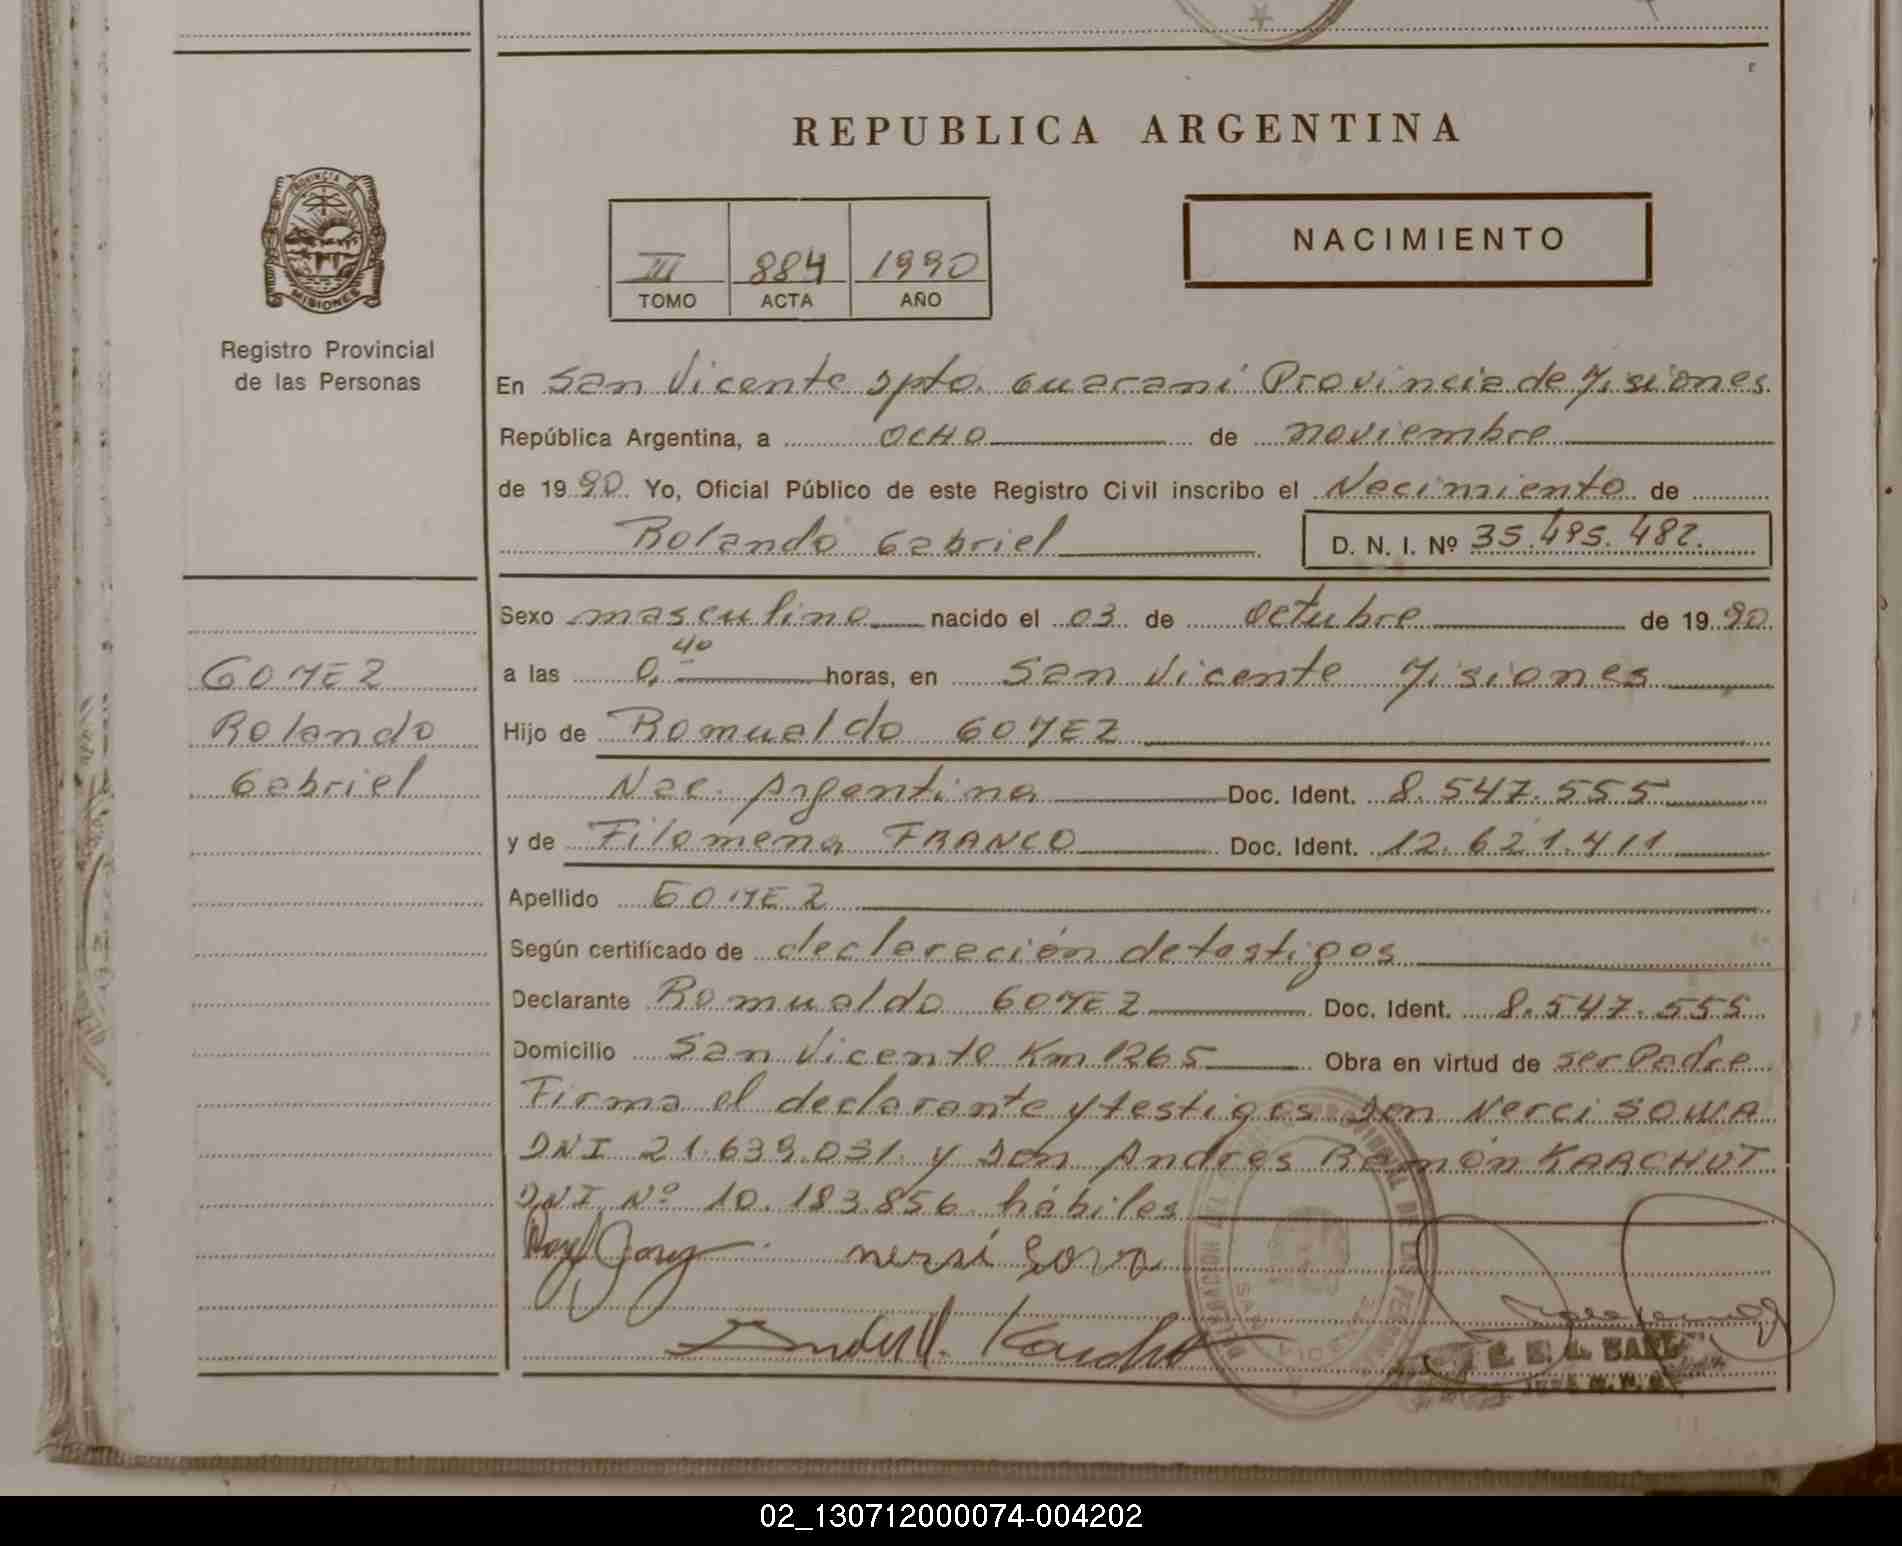 REPUBLICA ARGENTINA
PROVINCIA DE
MISIONES
Registro Provincial
de las Personas
III 884 1990
TOMO ACTA AÑO
NACIMIENTO
En San Vicente Dpto. Guaraní Provincia de Misiones
República Argentina, a OCHO de noviembre
de 1990. Yo, Oficial Público de este Registro Civil inscribo el Nacimiento de
Rolando Gabriel D. N. I. Nº 35.495.482.
Sexo masculino nacido el 03 de Octubre de 1990
a las 0,40 horas, en San Vicente Misiones
GOMEZ
Rolando
Gabriel
Hijo de Romualdo GOMEZ
Nac. Argentina Doc. Ident. 8.547.555
y de Filomena FRANCO Doc. Ident. 12.621.411
Apellido GOMEZ
Según certificado de declaración de testigos
Declarante Romualdo GOMEZ Doc. Ident. 8.547.555
Domicilio San Vicente Km 1265 Obra en virtud de ser Padre
Firma el declarante y testigos Don Nerci SOWA
DNI 21.639.031. y Don Andres Ramón KARCHUT
DNI Nº 10.183.856. hábiles
nersi Sova
02_130712000074-004202